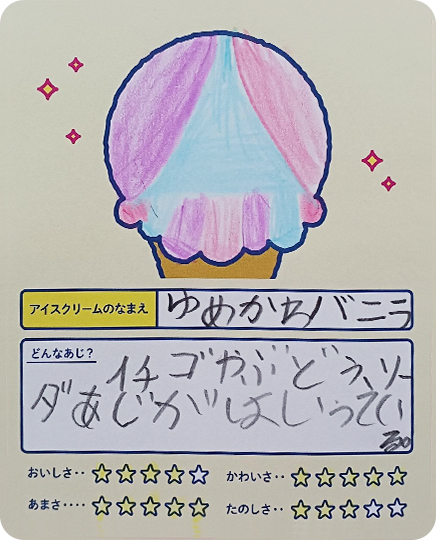 アイスクリームのなまえ
ゆめかわバニラ
どんなあじ?
イチゴやぶどう、ソー
ダあじがはいってい
る。
おいしさ‥
かわいさ‥
あまさ‥‥
たのしさ‥